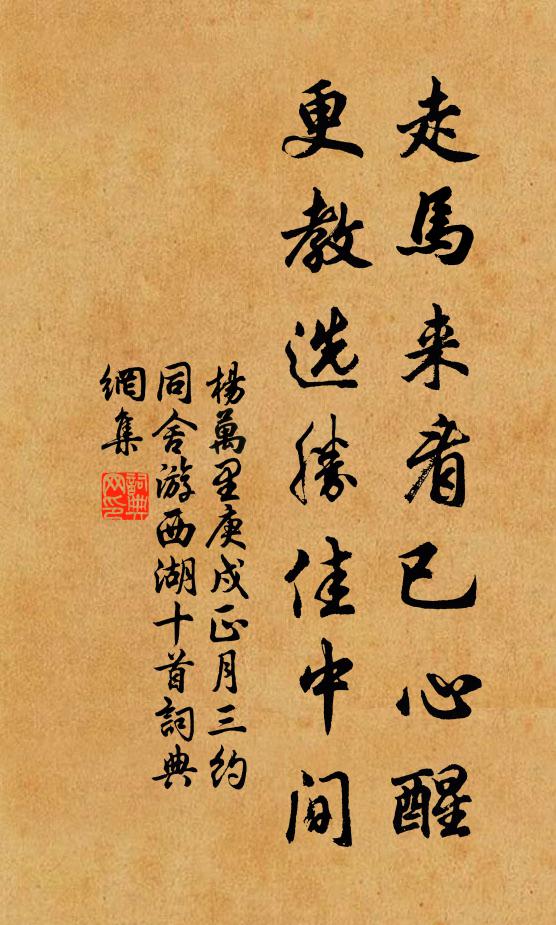 走馬来看已心醒
更教选勝佳中间
楊萬里庚戌正月三约
同舍游西湖十首詞典
網集
詞典
网印